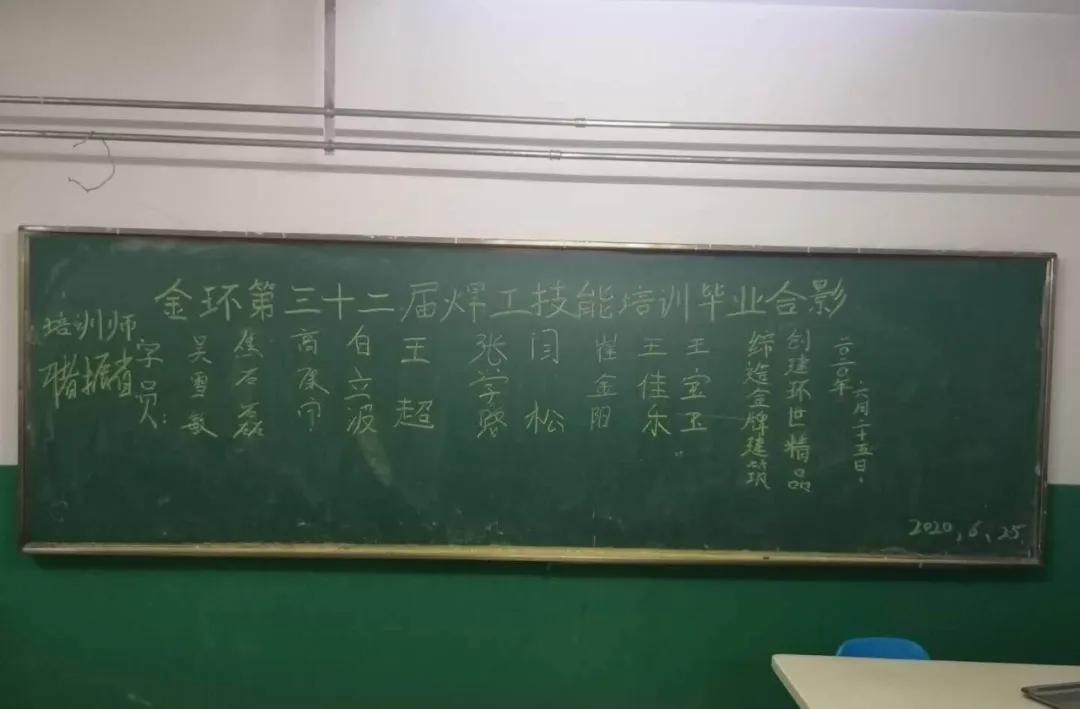 金环第三十二届焊工技能培训毕业合影
培训师
学员:
吴雪敏
焦石磊
高
白立波
王超
张学
闫松
崔金阳
王佳乐
王宝玉
缔造金牌建筑
创建环世精品
二〇二〇年
六月二十五日。
2020,6,25